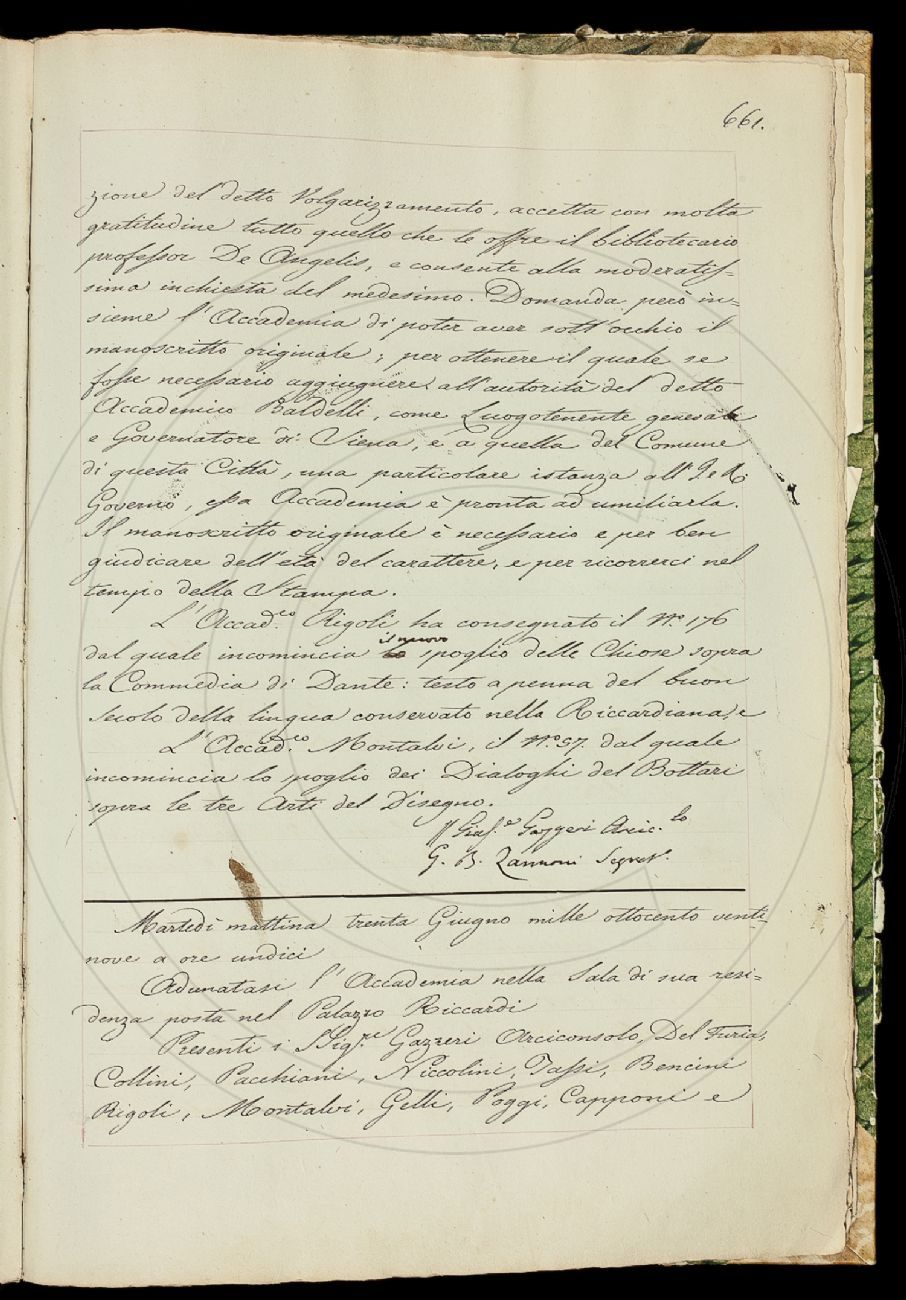 661.
zione del detto Volgarizzamento, accetta con molta
gratitudine tutto quello che le offre il bibliotecario
professor De Angelis, e consente alla moderatis-
sima inchiesta del medesimo. Domanda però in-
sieme l'Accademia di poter aver sott'occhio il
manoscritto originale; per ottenere il quale se
fosse necessario aggiugnere all'autorità del detto
Accademico Baldelli, come Luogotenente generale
e Governatore di Siena, e a quella del Comune
di questa Città, una particolare istanza all'I. e R.
Governo, essa Accademia è pronta ad umiliarla.
Il manoscritto originale è necessario e per ben
giudicare dell'età del carattere, e per ricorrerci nel
tempo della Stampa.
L'Accad.co Rigoli ha consegnato il N.o 176
dal quale incomincia il nuovo spoglio delle Chiose sopra
la Commedia di Dante: testo a penna del buon
secolo della lingua conservato nella Riccardiana, e
L'Accad.co Montalvi, il N.o 37. dal quale
incomincia lo spoglio dei Dialoghi del Bottari
sopra le tre Arti del Disegno.
Gazzeri Arcic.lo
G. B. Zannoni Segret.
Martedì mattina trenta Giugno mille ottocento venti-
nove a ore undici
Adunatasi l'Accademia nella Sala di sua resi-
denza posta nel Palazzo Riccardi
Presenti i SSig.re Gazzeri Arciconsolo, Del Furia,
Collini, Pacchiani, Niccolini, Tassi, Bencini
Rigoli, Montalvi, Gelli, Poggi, Capponi e